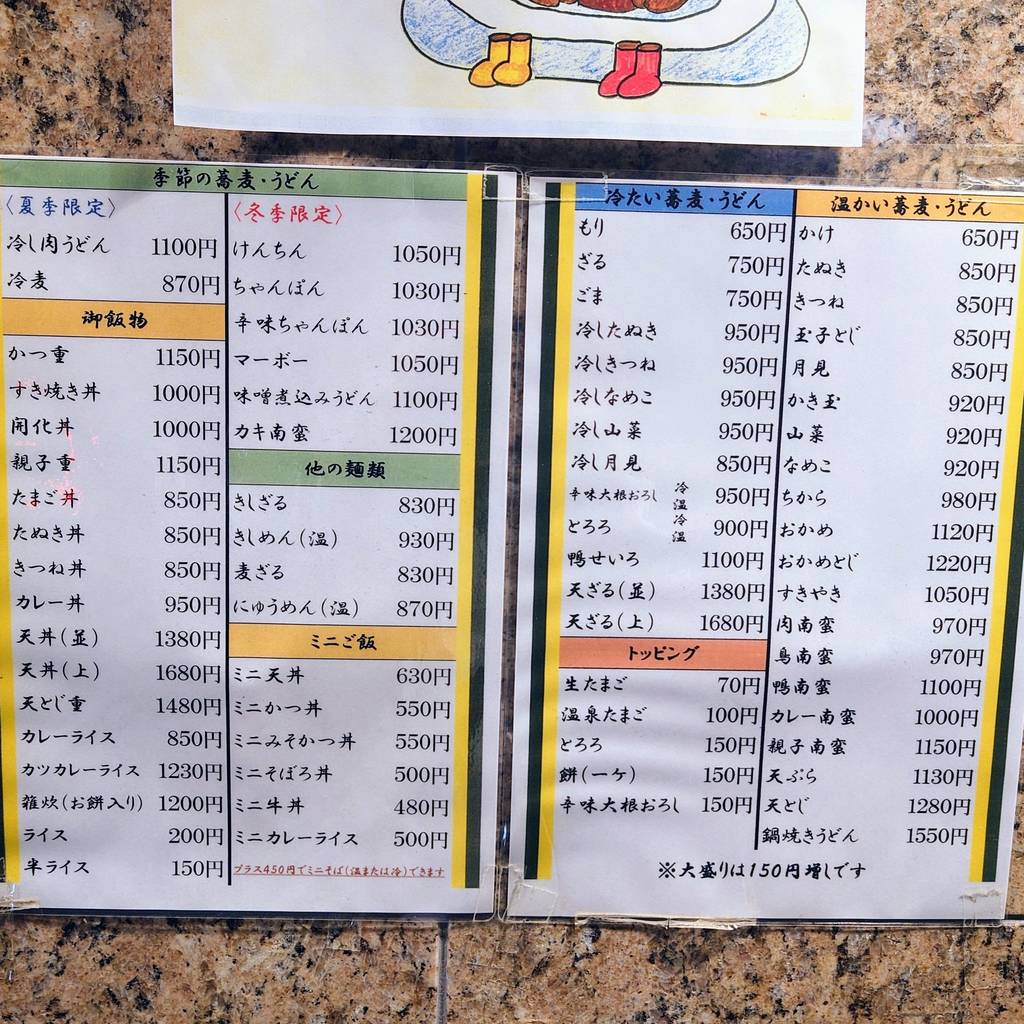 季節の蕎麦・うどん
〈夏季限定〉
冷し肉うどん 1100円
冷麦 870円
御飯物
かつ重 1150円
すき焼き丼 1000円
開化丼 1000円
親子重 1150円
たまご丼 850円
たぬき丼 850円
きつね丼 850円
カレー丼 950円
天丼(並) 1380円
天丼(上) 1680円
天とじ重 1480円
カレーライス 850円
カツカレーライス 1230円
雑炊(お餅入り) 1200円
ライス 200円
半ライス 150円
〈冬季限定〉
けんちん 1050円
ちゃんぽん 1030円
辛味ちゃんぽん 1030円
マーボー 1050円
味噌煮込みうどん 1100円
カキ南蛮 1200円
他の麺類
きしざる 830円
きしめん(温) 930円
麦ざる 830円
にゅうめん(温) 870円
ミニご飯
ミニ天丼 630円
ミニかつ丼 550円
ミニみそかつ丼 550円
ミニそぼろ丼 500円
ミニ牛丼 480円
ミニカレーライス 500円
プラス450円でミニそば(温または冷)できます
冷たい蕎麦・うどん
もり 650円
ざる 750円
ごま 750円
冷したぬき 950円
冷しきつね 950円
冷しなめこ 950円
冷し山菜 950円
冷し月見 850円
辛味大根おろし 冷温 950円
とろろ 冷温 900円
鴨せいろ 1100円
天ざる(並) 1380円
天ざる(上) 1680円
トッピング
生たまご 70円
温泉たまご 100円
とろろ 150円
餅(一ケ) 150円
辛味大根おろし 150円
温かい蕎麦・うどん
かけ 650円
たぬき 850円
きつね 850円
玉子とじ 850円
月見 850円
かき玉 920円
山菜 920円
なめこ 920円
ちから 980円
おかめ 1120円
おかめとじ 1220円
すきやき 1050円
肉南蛮 970円
鳥南蛮 970円
鴨南蛮 1100円
カレー南蛮 1000円
親子南蛮 1150円
天ぷら 1130円
天とじ 1280円
鍋焼きうどん 1550円
※大盛りは150円増しです